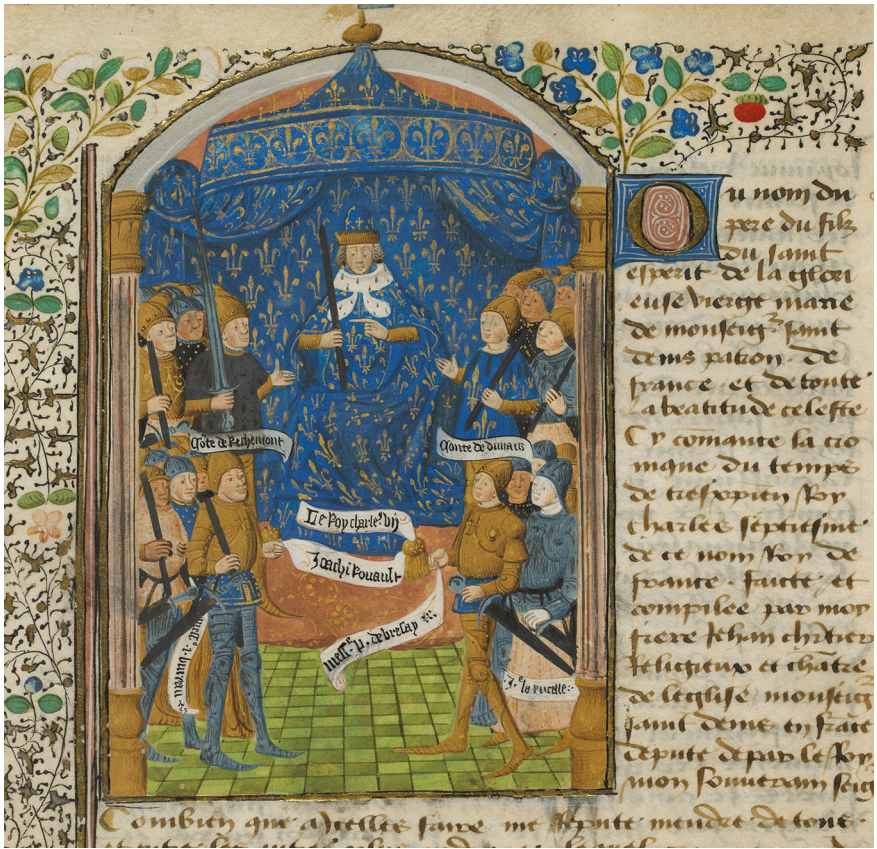 Cōte de Rechemont
Conte de dunois
Le Roy charles vij
Joachi Rouault
mess. p. de bresay
mess. J. bureau
J. la pucelle
Du nom du
pere du filz
du saint
esperit de la glori
euse vierge marie
de monseigr saint
denis patron de
france et de toute
la beatitude celeste
Cy cōmance la cro
nique du temps
de tresxpien Roy
charles septiesme
de ce nom Roy de
france. faicte et
compilee par moy
frere Jehan chrtier
Religieux et chātre
de leglise monseigr
saint denis en frāce
depute de par le Roy
mon souverain seigr
Combien que a Icelles faire me Repute mendre de tous